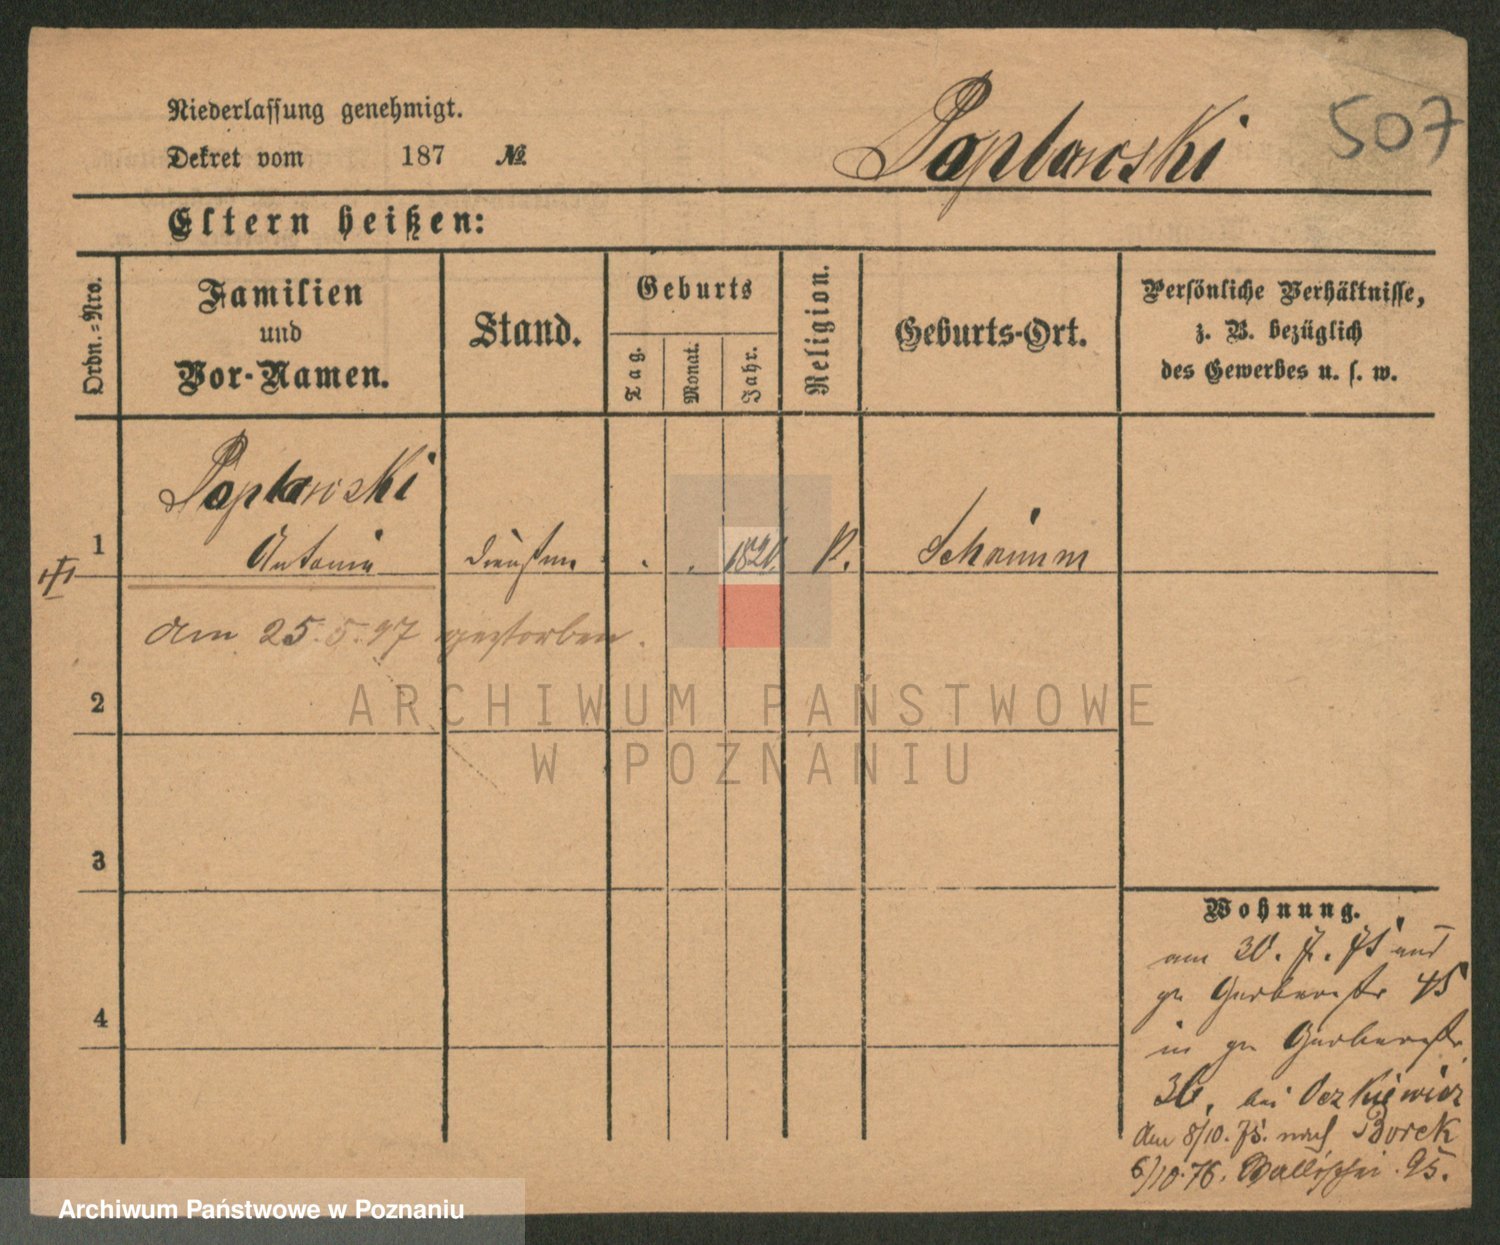 507
Niederlassung genehmigt.
Dekret vom 187 №
Poplawski
Eltern heißen:
Ordn.-Nro.
Familien und Vor-Namen.
Stand.
Geburts
Tag.
Monat.
Jahr.
Religion.
Geburts-Ort.
Persönliche Verhältnisse,
z. B. bezüglich
des Gewerbes u. s. w.
Poplawski
1 Antonie . . P. Schrimm
am 25.5.97 gestorben.
2
3
4
Wohnung.
am 30. 7. 75 aus
gr Gerberstr 45
in gr Gerberstr
36, bei Oczkiewicz
am 8/10. 75. nach Borek
6/10.76. Wallischei 95.
ARCHIWUM PAŃSTWOWE
W POZNANIU
Archiwum Państwowe w Poznaniu